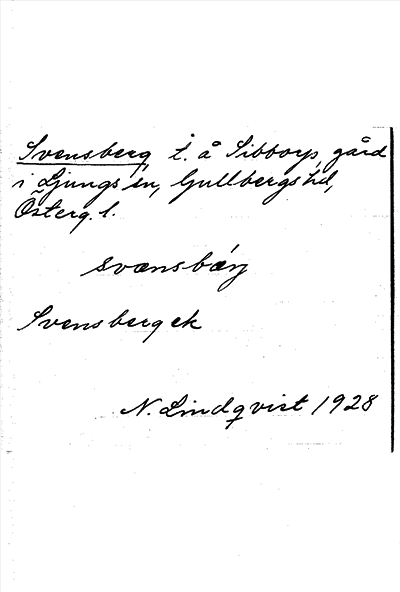 Svensberg, t. å Sibborps gård
i Ljungs sn, Gullbergs hd,
Österg. l.
svænsbærj
Svensberg ek
N. Lindqvist 1928